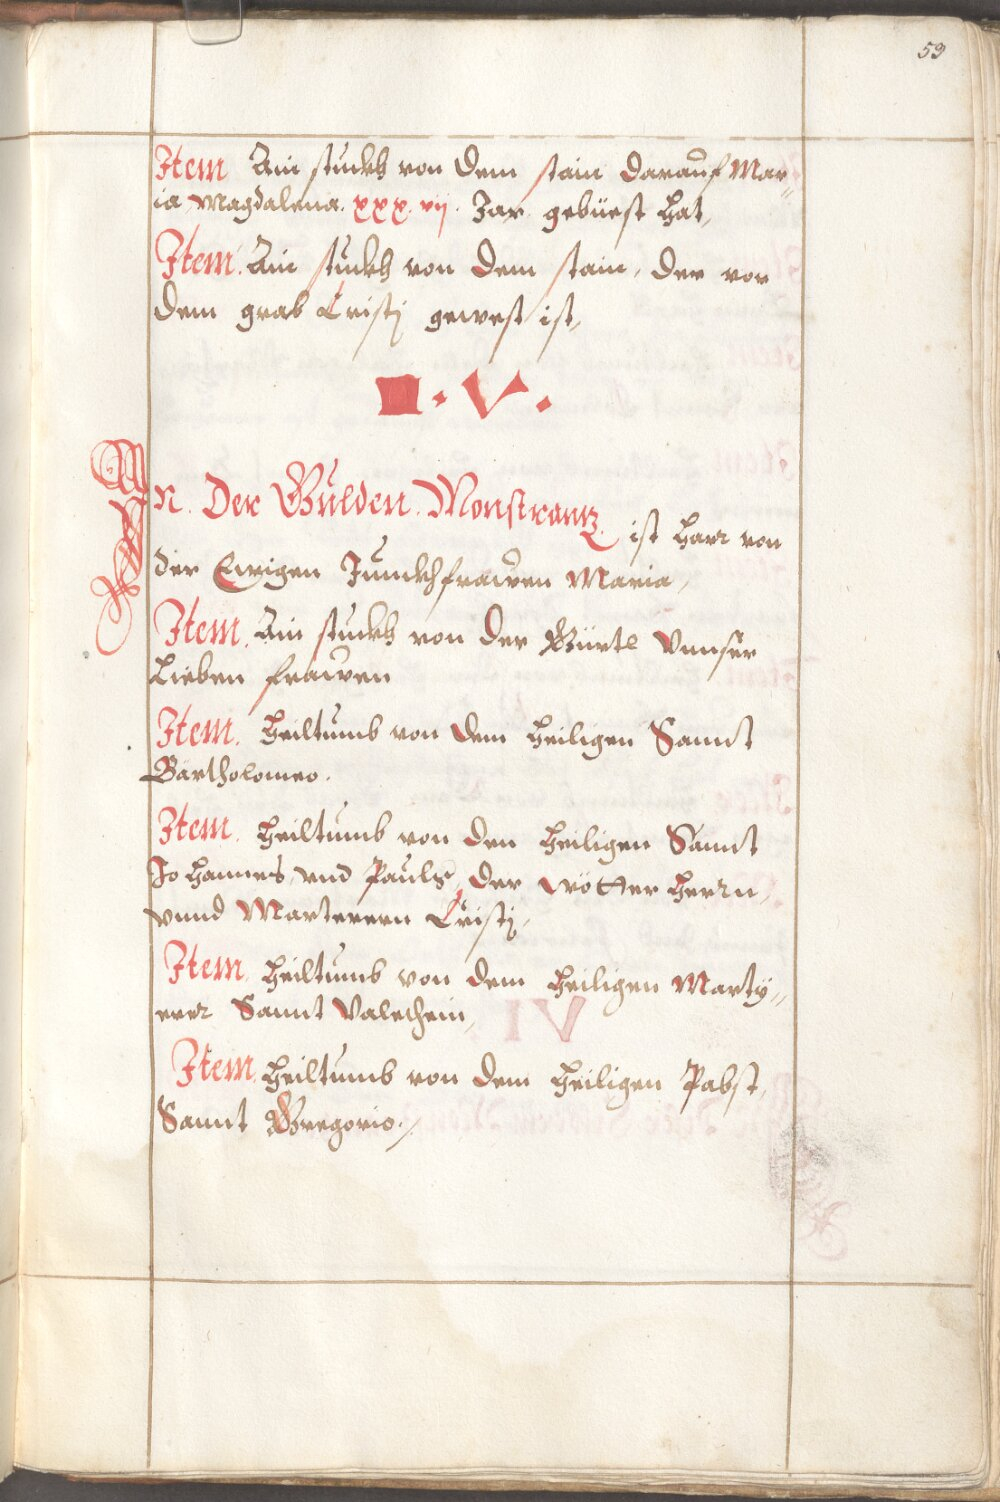 59
Item Ain stuckh von dem stain darauf Mar„
ia Magdalena. xxx. vij. Jar gebüest hat,
Item. Ain stuckh von dem stain, der vor
dem grab Cristj gewest ist,
. V .
IN. Der Gulden. Monstrantz. ist Harr von
der Ewigen Junckhfrawen Maria,
Item. Ain stuckh von der Gürtl Vnnser
Lieben frawen
Item. Heiltumb von dem Heiligen Sannt
Bartholomeo.
Item. Heiltumb von den Heiligen Sannt
Johannes vnd Pauls, der wötter Herrn,
vnnd Marterern Cristj,
Item. Heiltumb von dem Heiligen Marty„
rer Sannt Valethein,
Item. Heiltumb von dem Heiligen Pabst,
Sannt Gregorio.